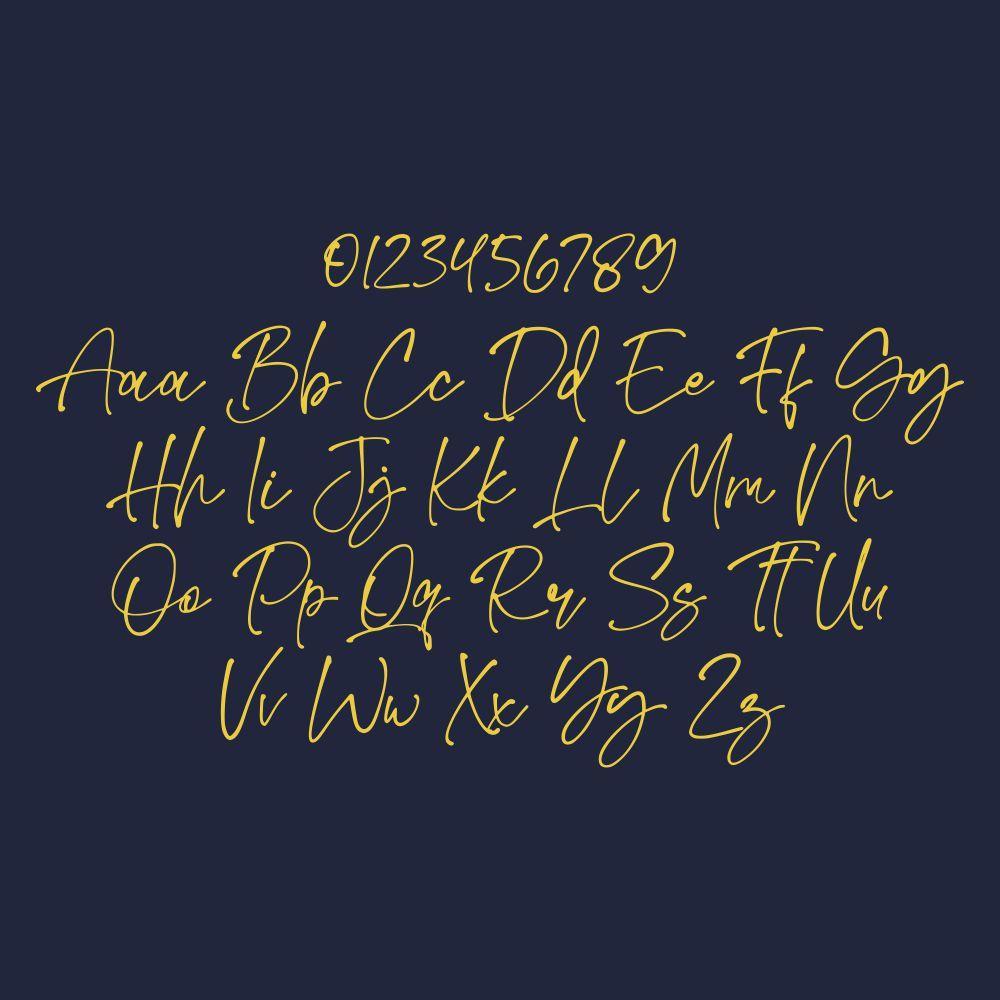 0123456789
Aaa Bb Cc Dd Ee Ff Gg
Hh Ii Jj Kk Ll Mm Nn
Oo Pp Qq Rr Ss Tt Uu
Vv Ww Xx Yy Zz